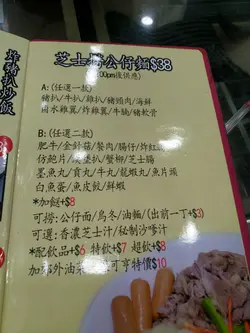 炸豬扒炒飯
芝士撈公仔麵$38
:00pm後供應)
A: (任選一款)
豬扒/牛扒/雞扒/豬頸肉/海鮮
鹵水雞翼/炸雞翼/牛腸/豬軟骨
B: (任選二款)
肥牛/金針菇/餐肉/腸仔/炸紅腸
仿鮑片/漢堡扒/蟹柳/芝士腸
墨魚丸/貢丸/牛丸/龍蝦丸/魚片頭
白魚蛋/魚皮餃/鮮蝦
*加餸+$8
可撈: 公仔面/烏冬/油麵/(出前一丁+$3)
可選: 香濃芝士汁/秘制沙嗲汁
*配飲品+$6 特飲+$7 超飲+$8
可享特價$10